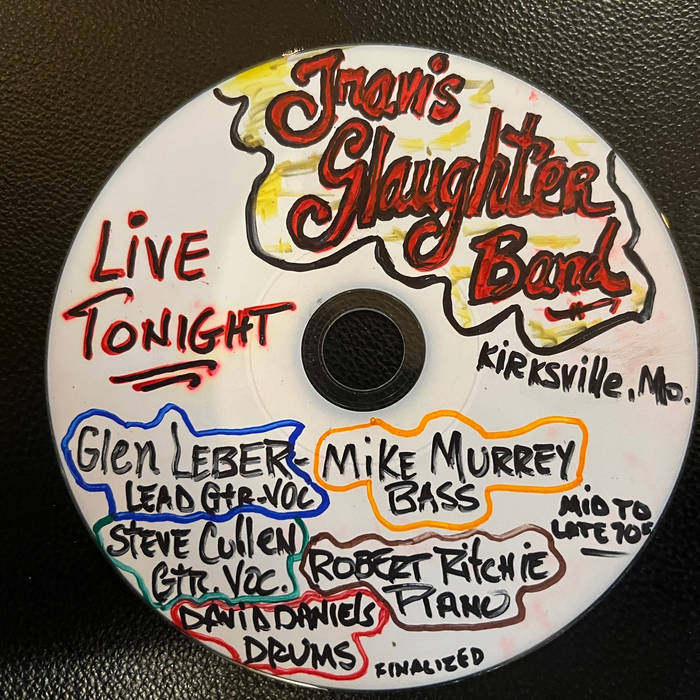 Travis
Slaughter
Band
LIVE
TONIGHT
KIRKSVille, Mo.
Glen LEBER-
LEAD GtR-VOC
MiKE MURREY
BASS
MID TO
LATE 70s
STEVE Cullen
GtR. VOC.
ROBERT RitcHiE
PIANO
DAViD DANiELS
DRUMS
FINALIZED